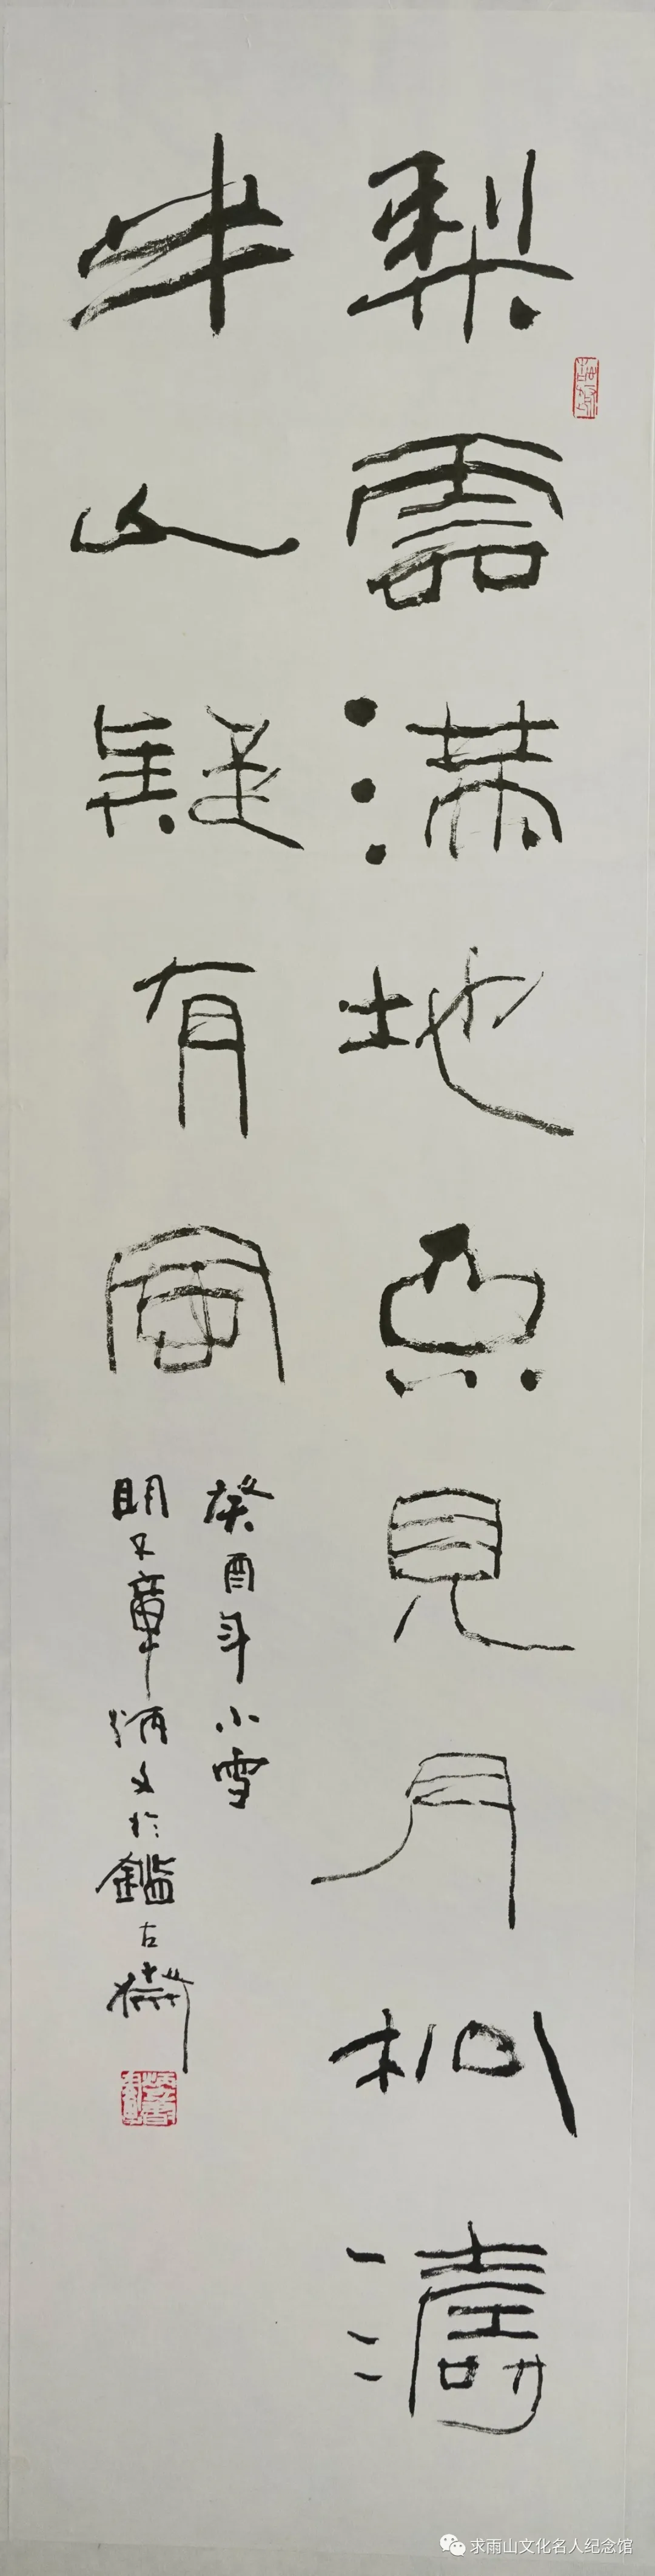 梨雲满地不見月松濤
半山疑有風
癸酉年小雪
明 章炳文於鑑古
求雨山文化名人纪念馆